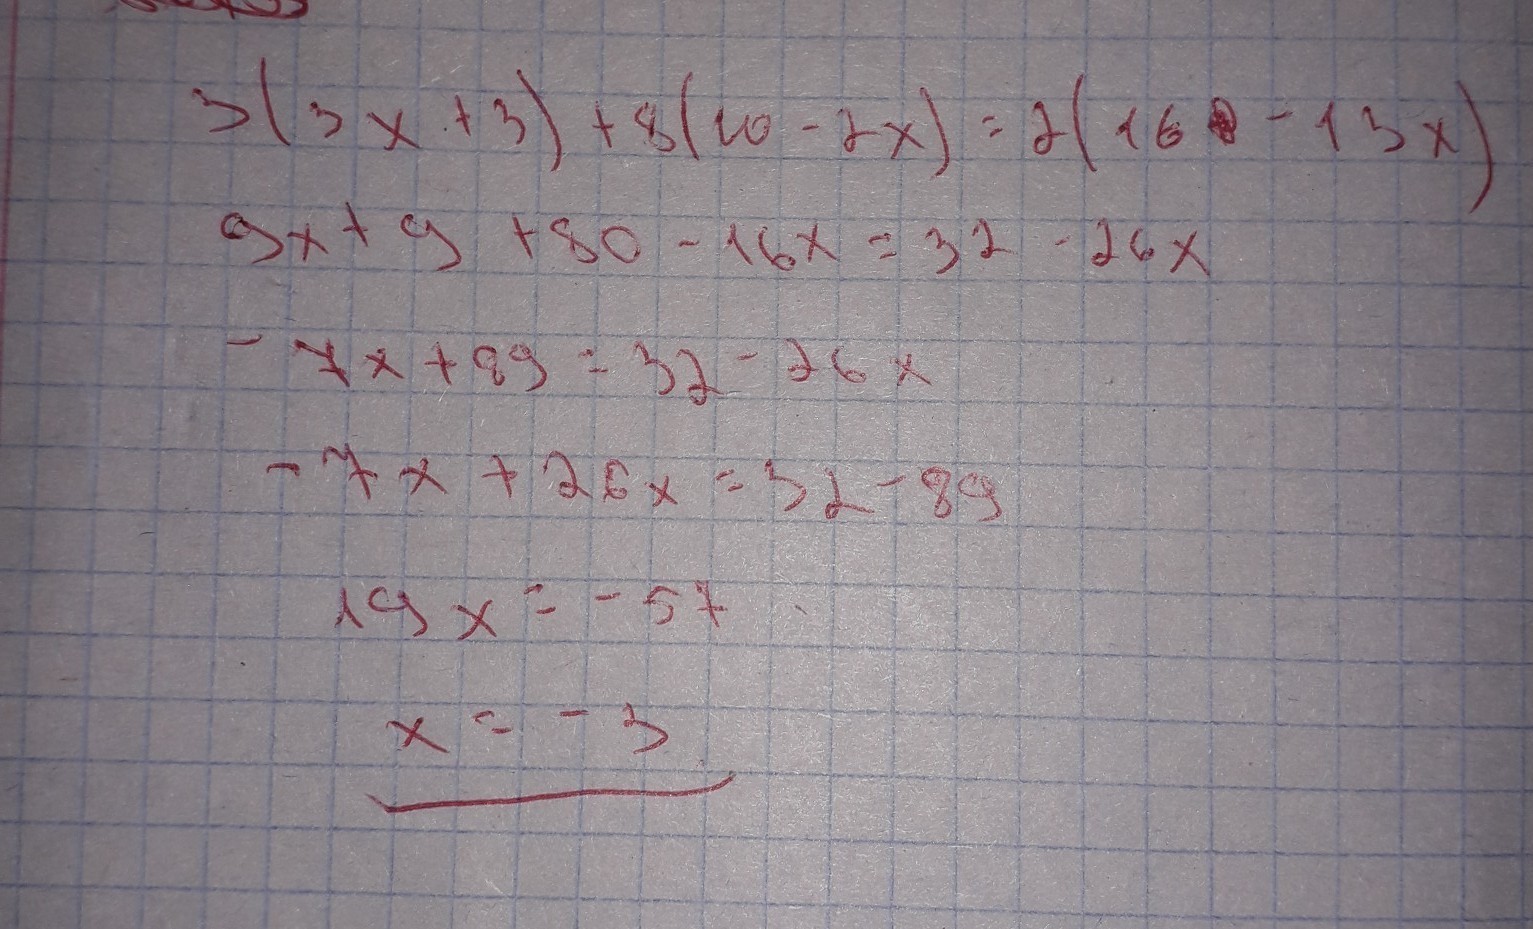 3(3x+3)+8(10-2x)=2(16-13x)
9x+9+80-16x=32-26x
-7x+89=32-26x
-7x+26x=32-89
19x=-57
x=-3